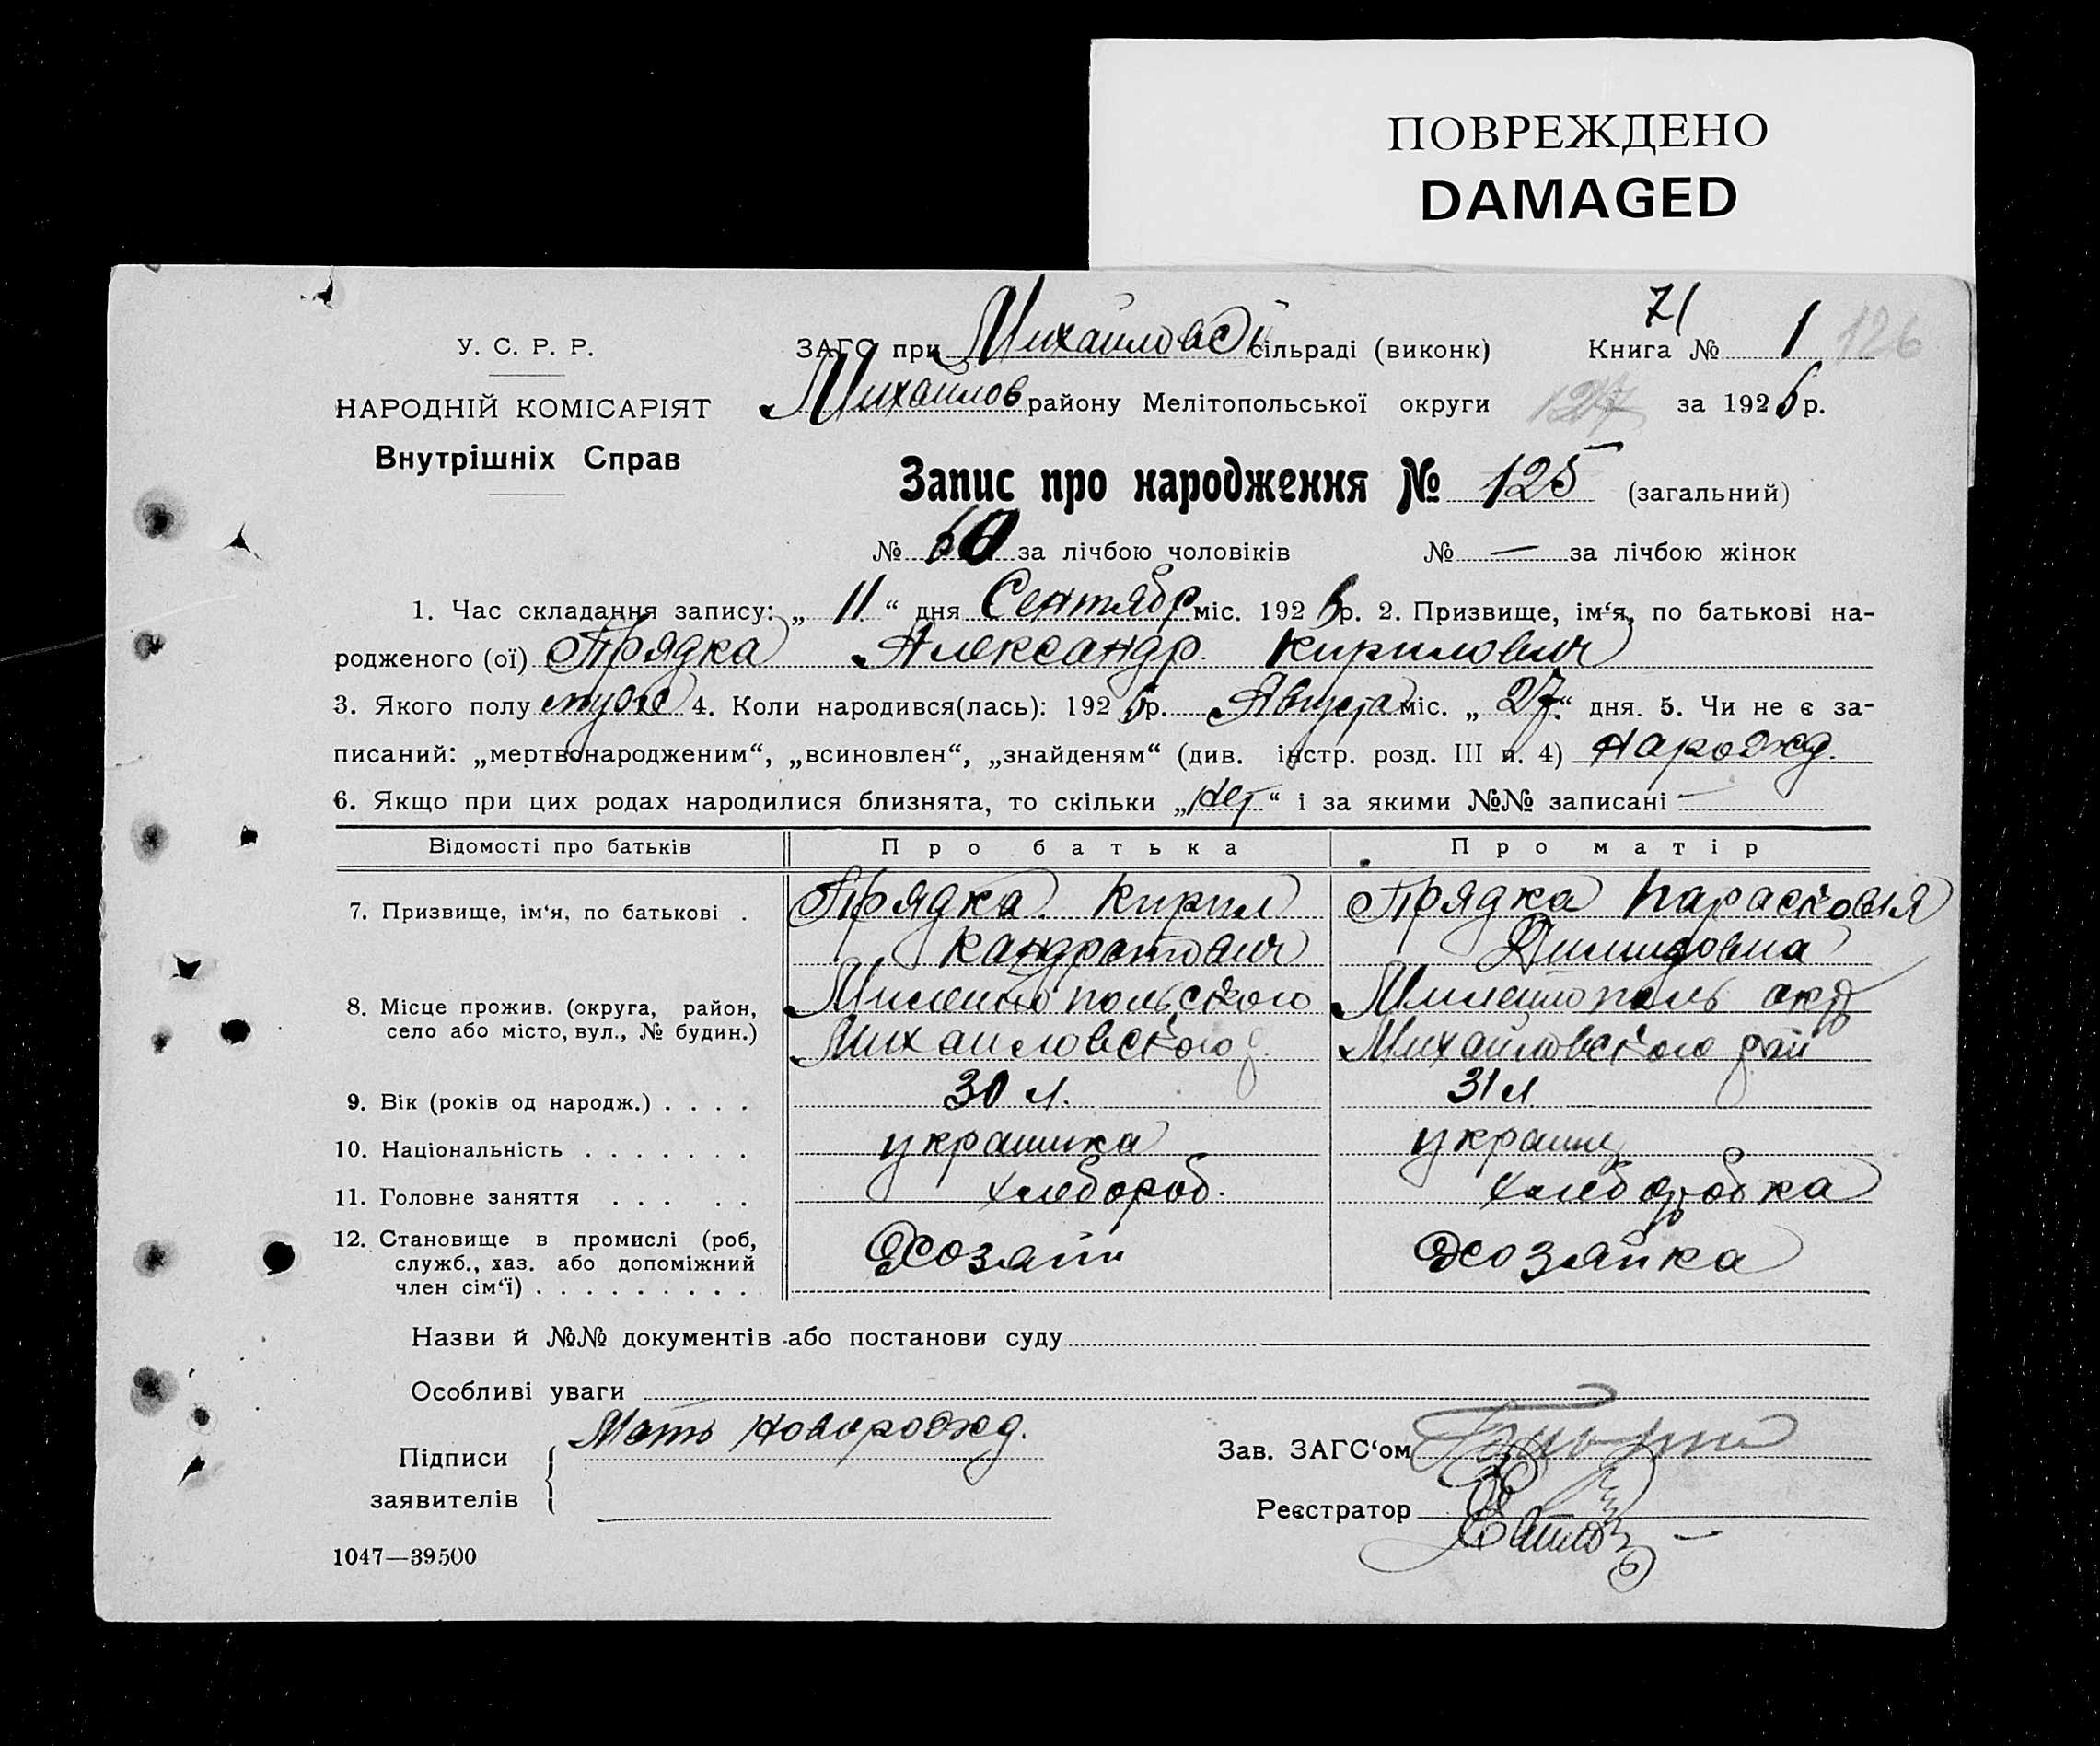 ПОВРЕЖДЕНО
DAMAGED
71
У. С. Р. Р.
ЗАГС при Михайловс сільраді (виконк) Книга № 1 126
НАРОДНІЙ КОМІСАРІЯТ
Михайлов району Мелітопольської округи 127 за 1926 р.
Внутрішніх Справ
Запис про народження № 125 (загальний)
№ 60 за лічбою чоловіків № — за лічбою жінок
1. Час складання запису: „ 11 “ дня Сентябр міс. 1926 р. 2. Призвище, ім‘я, по батькові на-
родженого (ої) Прядка Александр Кирилович
3. Якого полу муж 4. Коли народився(лась): 1926 р. Августа міс. „ 27 “ дня. 5. Чи не є за-
писаний: „мертвонародженим“, „всиновлен“, „знайденям“ (див. інстр. розд. III п. 4) Нарожд.
6. Якщо при цих родах народилися близнята, то скільки „ нет “ і за якими №№ записані —
Відомості про батьків Про батька Про матір
7. Призвище, ім‘я, по батькові . Прядка Кирил Прядка Парасковия
Кандратович
8. Місце прожив. (округа, район, село або місто, вул., № будин.) Милетопольского Милетополь окр
Михайловского р Михайловского рай
9. Вік (років од народж.) . . . . 30 л. 31 л
10. Національність . . . . . . . украинка украин
11. Головне заняття . . . . . хлебороб. хлеборобка
12. Становище в промислі (роб, служб., хаз. або допоміжний член сім‘ї) . . . . . . . . . Хозяин Хозяйка
Назви й №№ документів або постанови суду
Особливі уваги
Підписи заявителів Мать Новорожд.
Зав. ЗАГС‘ом
Реєстратор
1047—39500